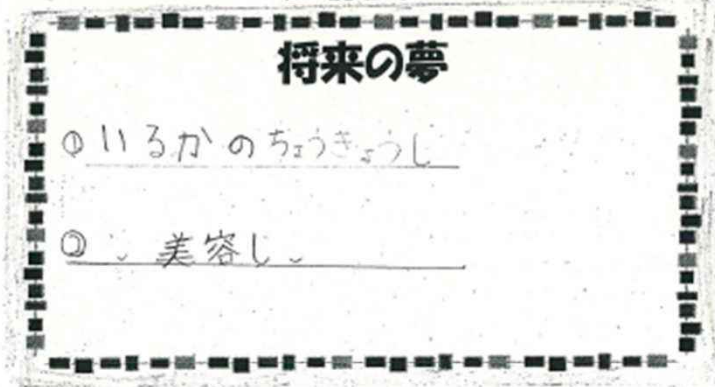 将来の夢
①いるかのちょうきょうし
② 美容し